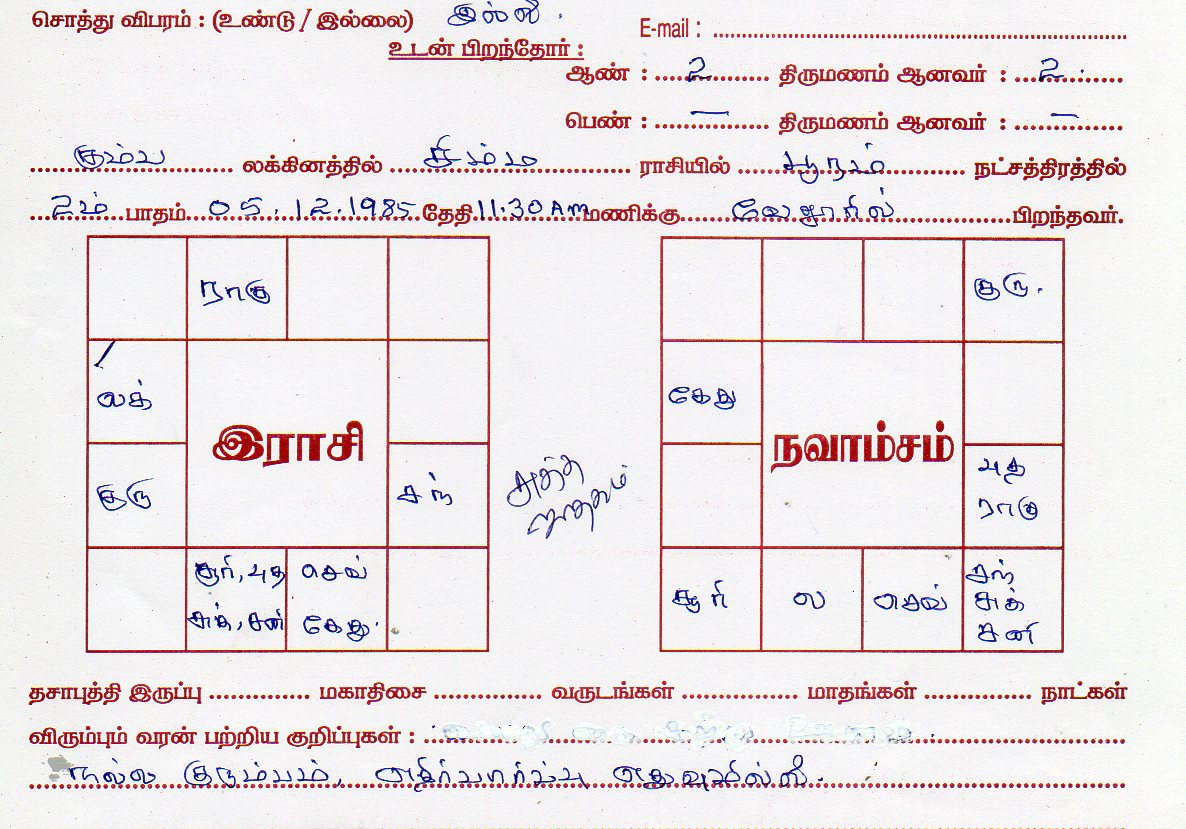 சொத்து விபரம் : (உண்டு / இல்லை) இல்லை. E-mail :
உடன் பிறந்தோர் :
ஆண் : 2 திருமணம் ஆனவர் : 2.
பெண் : — திருமணம் ஆனவர் : —
கும்ப லக்கினத்தில் சிம்ம ராசியில் பூரம் நட்சத்திரத்தில்
2ம் பாதம் 05.12.1985 தேதி 11.30 AM மணிக்கு வேலூரில் பிறந்தவர்.
ராகு
லக்
இராசி
குரு
சந்
சூரி, புத செவ்
சுக், சனி கேது
குரு.
கேது
நவாம்சம்
புத
ராகு
சூரி ல செவ் சந்
சுக்
சனி
சுத்த
ஜாதகம்
தசாபுத்தி இருப்பு மகாதிசை வருடங்கள் மாதங்கள் நாட்கள்
விரும்பும் வரன் பற்றிய குறிப்புகள் :
நல்ல குடும்பம், எதிர்பார்ப்பு எதுவுமில்லை.